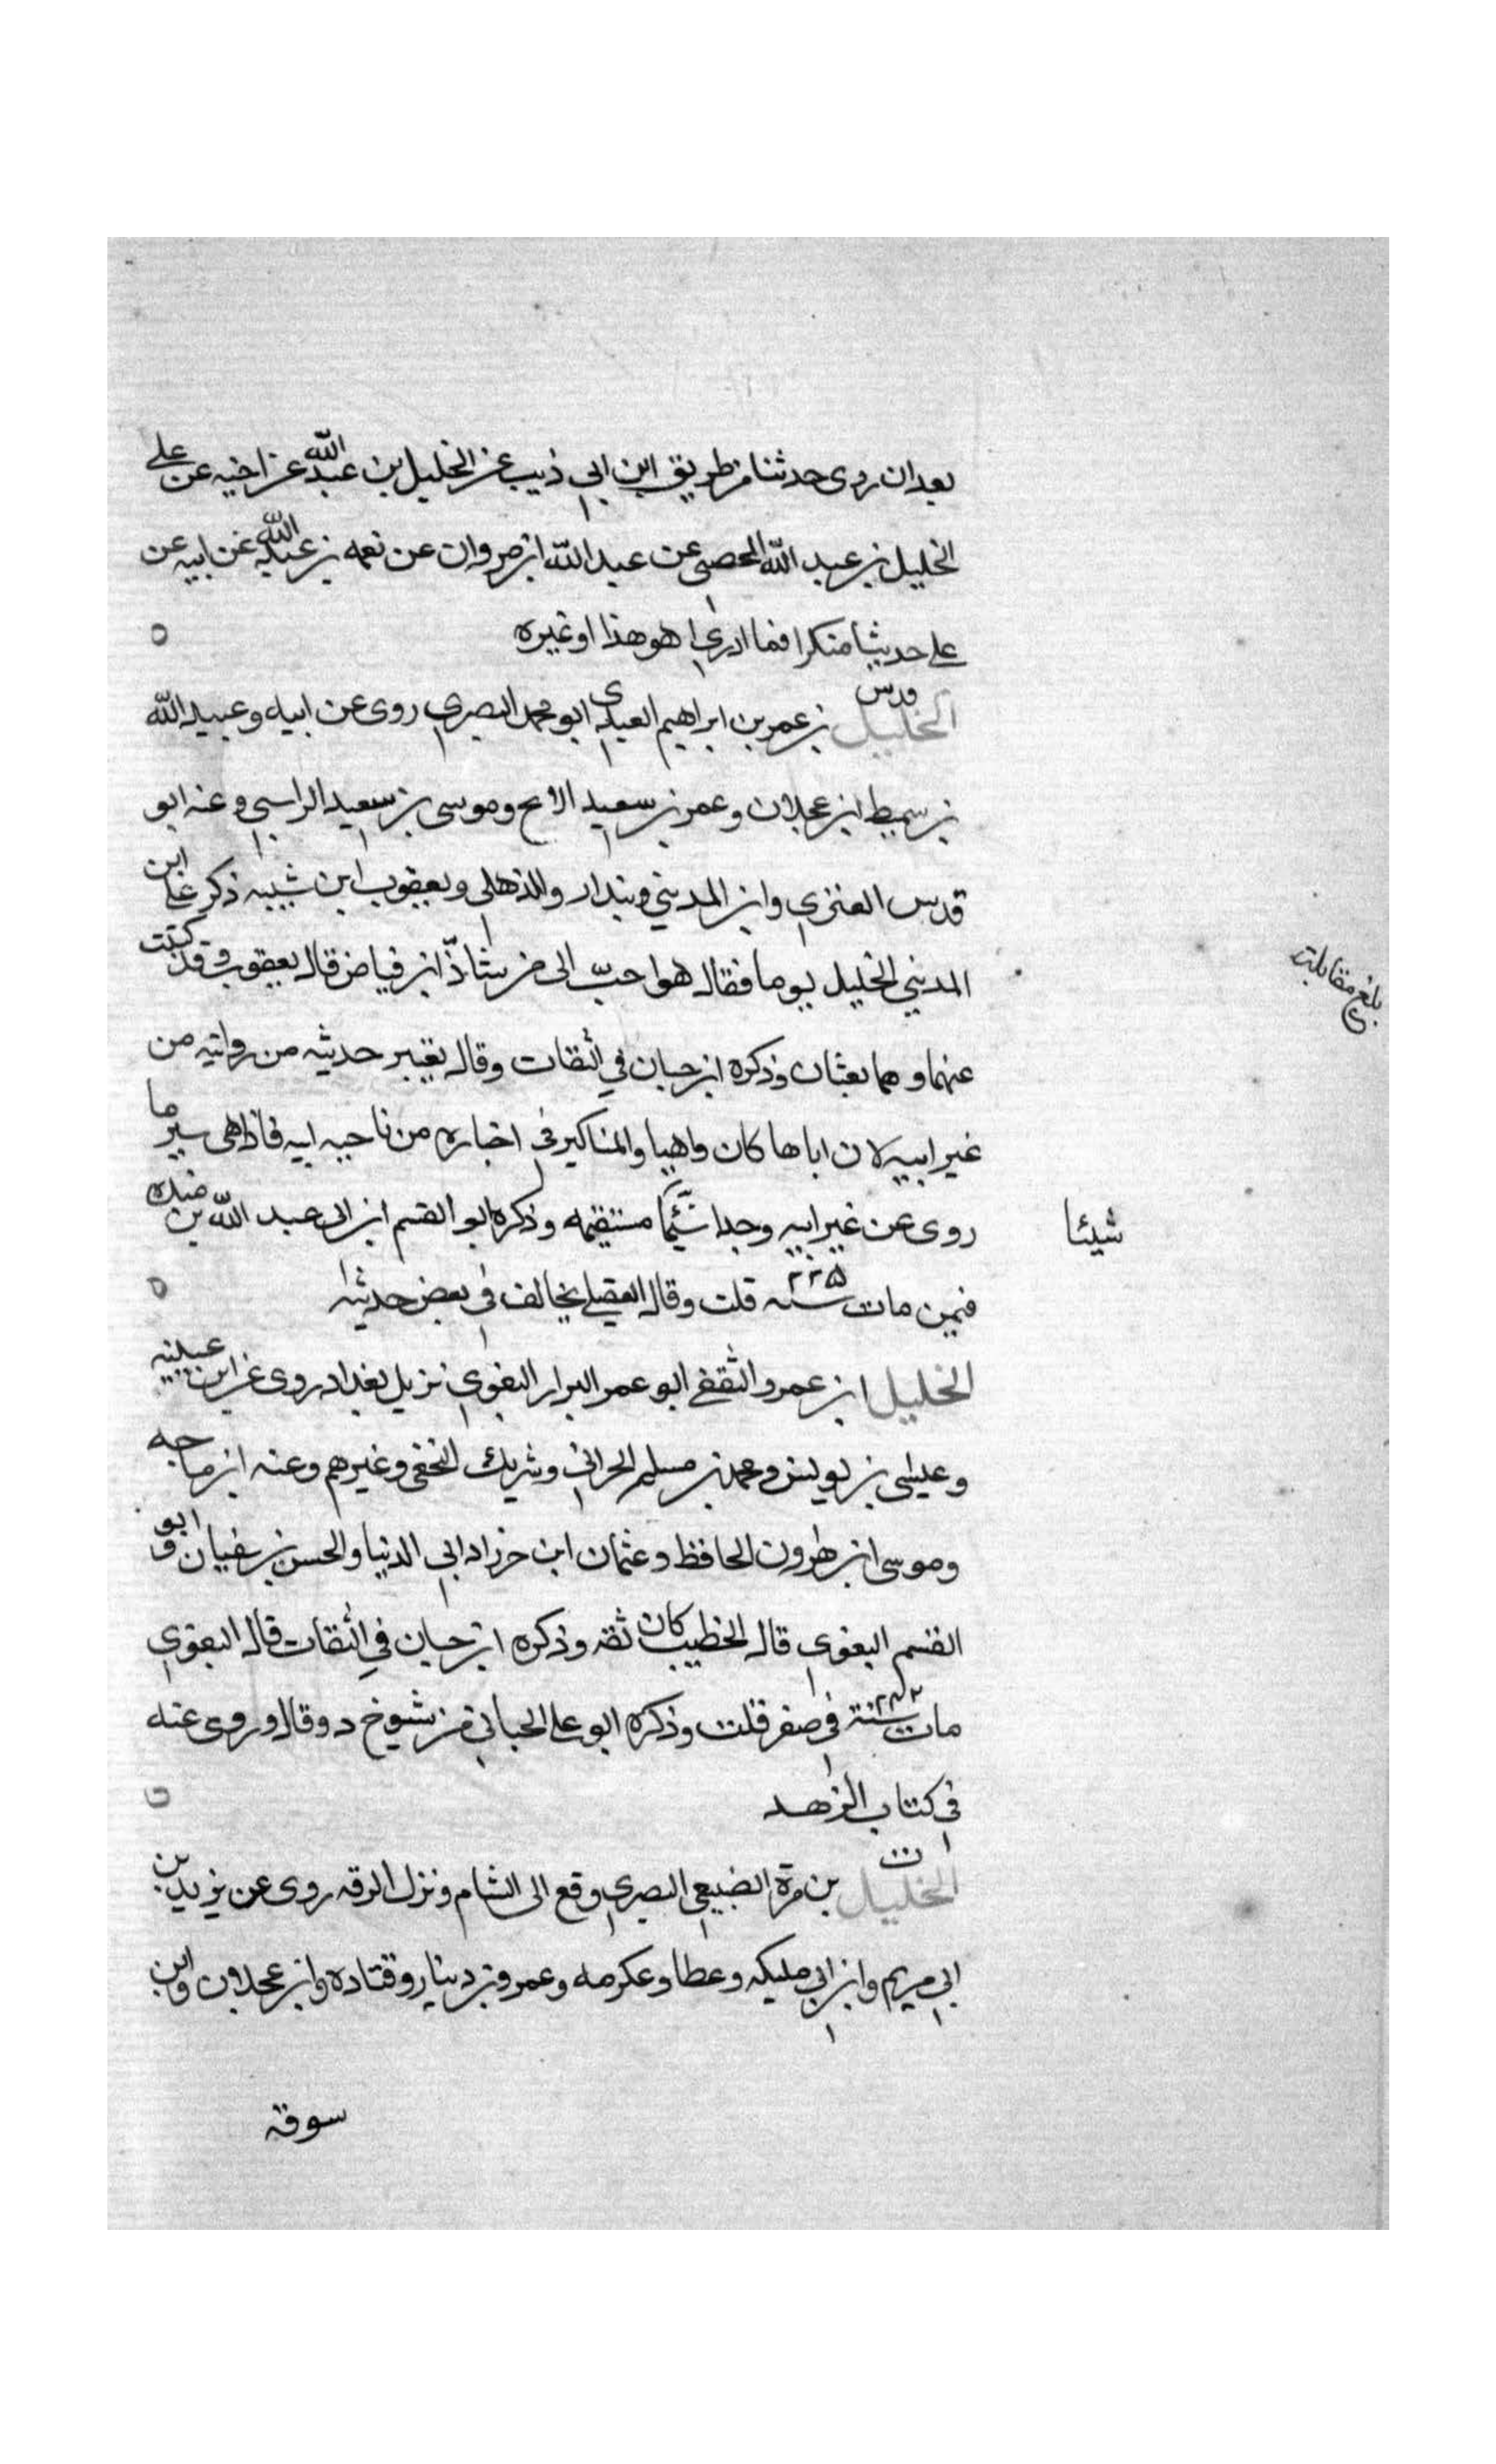 بعد ان روى حدثنا من طريق ابن ابي ذيب عن الخليل بن عبد الله عن اخيه عن على
الخليل بن عبد الله الحمصى عن عبد الله ابن مروان عن نعمه بن عبد الله عن ابيه عن
على حديثا منكرا فما ادرى اهو هذا او غيره ٥
قدس
الخليل بن عمر بن ابراهيم العبدى ابو محمد البصرى روى عن ابيه وعبيد الله
بن سميط ابن عجلان وعمر بن سعيد الابح وموسى بن سعيد الراسبى وعنه ابو
قدس العنزى وابن المدينى وبندار والذهلى ويعقوب ابن شيبه ذكر على ابن
المدينى الخليل يوما فقال هو احبّ الى من شاذّ ابن فياض قال يعقوب وقد كتبت
بلغ مقابلة
عنهما وهما بعثان وذكره ابن حبان في الثقات وقال يعتبر حديثه من روايته من
غير ابيه لان اباها كان واهيا والمناكير فى اخباره من ناحيه ابيه فاذا هى سير ما
روى عن غير ابيه وجدا شيئا مستقيمه وذكره ابو القسم ابن ابى عبد الله بن منده
شيئا
فيمن مات سنه ٢٢٥ قلت وقال العقيلى يخالف فى بعض حديثه ٥
الخليل ابن عمرو الثقفى ابو عمر البزار البغوى نزيل بغداد روى عن ابن عيينه
وعيسى بن يونس ومحمد بن مسلم الحرانى وشريك النخعى وغيرهم وعنه ابن ماجه
وموسى ابن هرون الحافظ وعثمان ابن خرزاد ابى الدنيا والحسن بن سفيان وابو
القسم البغوى قال الخطيب كان ثقه وذكره ابن حبان في الثقات قال البغوى
مات سنة ٢٤٢ فى صفر قلت وذكره ابو على الجيانى من شيوخ د وقال وروى عنه
فى كتاب الزهد
ت
الخليل بن مرة الضبيعى البصرى وقع الى الشام ونزل الرقه روى عن يزيد بن
ابى مريم وابن ابى مليكه وعطا وعكرمه وعمرو بن دينار وقتاده وابن عجلان وابن
سوقه